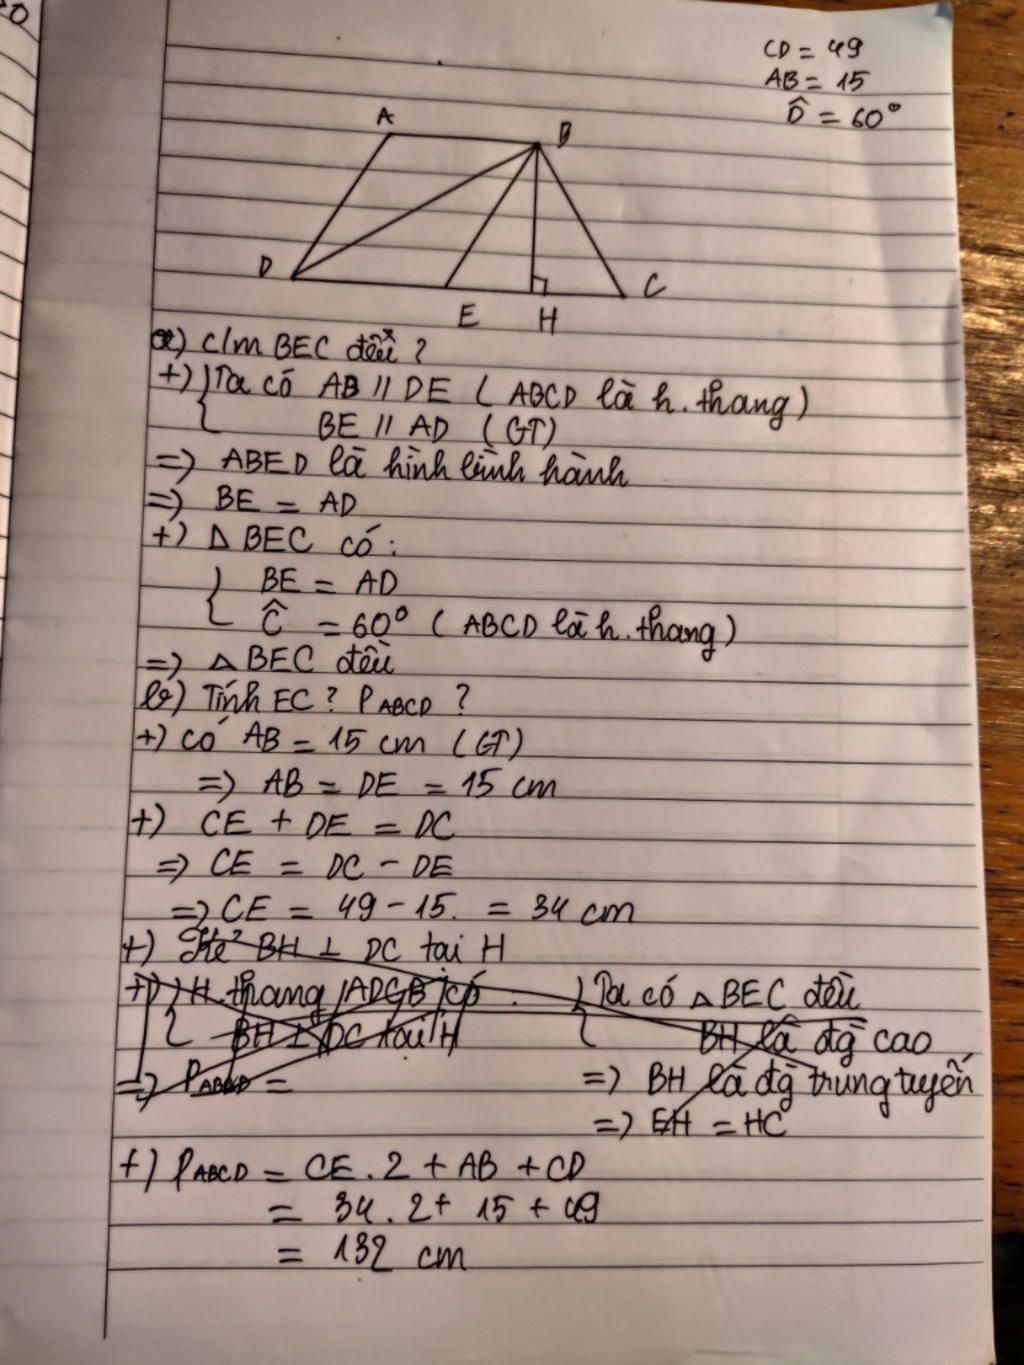 CD = 49
AB = 15
D̂ = 60°
A
B
D
C
E
H
a) C/m BEC đều ?
+) Ta có AB // DE ( ABCD là h.thang )
BE // AD ( GT)
=> ABED là hình bình hành
=> BE = AD
+) Δ BEC có :
BE = AD
Ĉ = 60° ( ABCD là h.thang )
=> Δ BEC đều
b) Tính EC ? PABCD ?
+) có AB = 15 cm ( GT)
=> AB = DE = 15 cm
+) CE + DE = DC
=> CE = DC - DE
=> CE = 49 - 15. = 34 cm
+) Kẻ BH ⊥ DC tại H
+) H.thang ADCB có :
BH ⊥ DC tại H
=> PABCD =
Ta có Δ BEC đều
BH là đg cao
=> BH là đg trung tuyến
=> EH = HC
+) PABCD = CE . 2 + AB + CD
= 34 . 2 + 15 + 49
= 132 cm